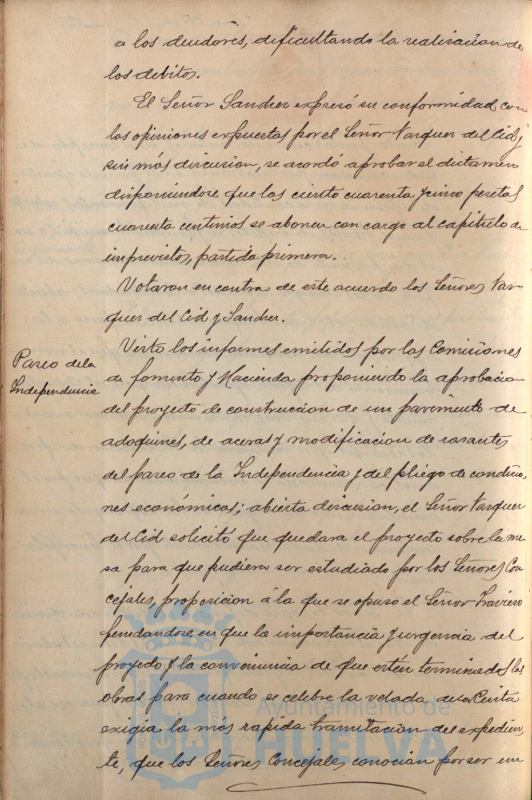 a los deudores, dificultando la realizacion de
los debitos.
El Señor Sanchez expresó su conformidad con
las opiniones expuestas por el Señor Vazquez del Cid, y
sin más discusion, se acordó aprobar el dictamen
disponiendose que las ciento cuarenta y cinco pesetas
cuarenta centimos se abonen con cargo al capitulo de
imprevistos, partida primera.
Votaron en contra de este acuerdo los Señores Vaz-
quez del Cid y Sanchez.
Paseo de la
Independencia
Visto los informes emitidos por las Comisiones
de fomento y Hacienda proponiendo la aprobacion
del proyecto de construccion de un pavimento de
adoquines, de aceras y modificacion de rasantes
del paseo de la Independencia y del pliego de condicio-
nes económicas; abierta discusion, el Señor Vazquez
del Cid solicitó que quedara el proyecto sobre la me-
sa para que pudiera ser estudiado por los Señores Con-
cejales, proposicion á la que se opuso el Señor
fundandose en que la importancia y urgencia del
proyecto y la conveniencia de que estén terminadas las
obras para cuando se celebre la velada de la Cinta
exigia la más rapida tramitacion del expedien-
te, que los Señores Concejales conocian por ser un
Ayuntamiento de
HUELVA